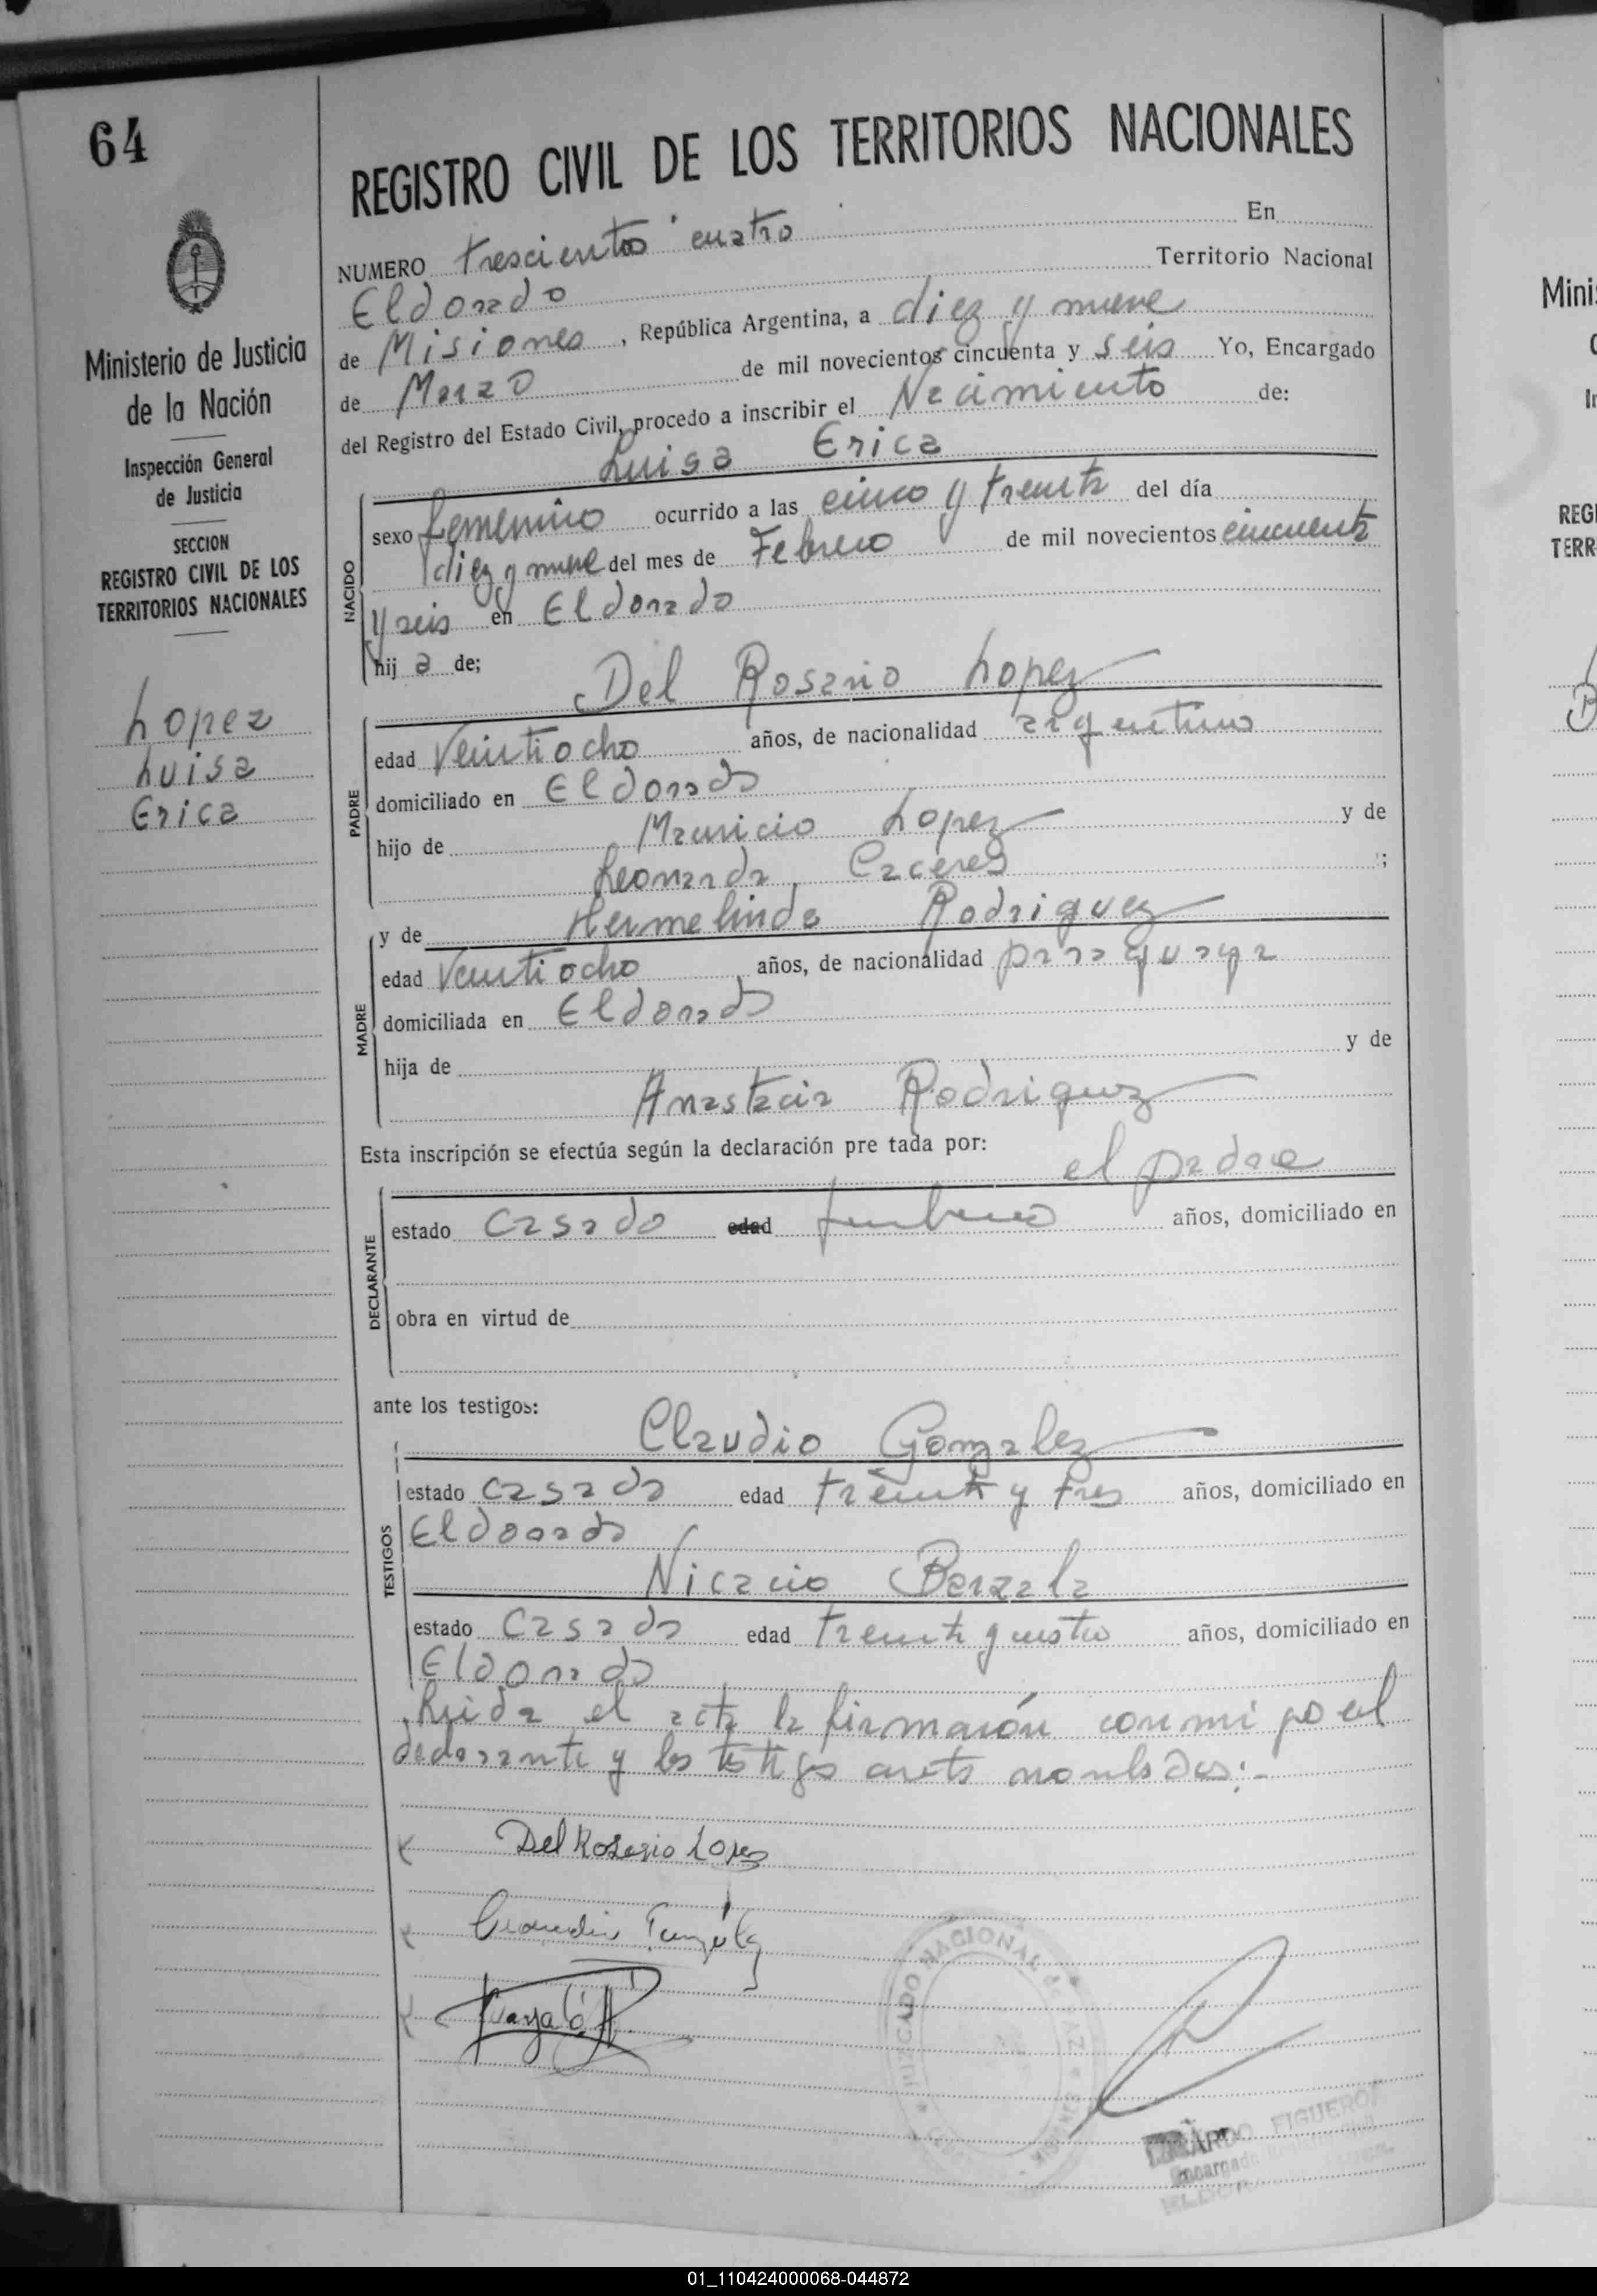 64
REGISTRO CIVIL DE LOS TERRITORIOS NACIONALES
NUMERO trescientos cuatro En
Eldorado Territorio Nacional
de Misiones, República Argentina, a diez y nueve
de Marzo de mil novecientos cincuenta y seis Yo, Encargado
del Registro del Estado Civil, procedo a inscribir el Nacimiento de:
Luisa Erica
NACIDO
sexo femenino ocurrido a las cinco y treinta del día
diez y nueve del mes de Febrero de mil novecientos cincuenta
y seis en Eldorado
hija de;
Del Rosario Lopez
PADRE
edad Veintiocho años, de nacionalidad argentino
domiciliado en Eldorado
hijo de Mauricio Lopez y de
Leonarda Caceres ;
MADRE
y de Hermelinda Rodriguez
edad Veintiocho años, de nacionalidad paraguaya
domiciliada en Eldorado
hija de y de
Anastacia Rodriguez
Esta inscripción se efectúa según la declaración pre tada por:
el padre
DECLARANTE
estado casado edad años, domiciliado en
obra en virtud de
ante los testigos:
Claudio Gonzalez
TESTIGOS
estado casado edad treinta y tres años, domiciliado en
Eldorado
Nicacio
estado casado edad treinta y cuatro años, domiciliado en
Eldorado
Leida el acta la firmarón conmigo el
declarante y los testigos nombrados:-
Del Rosario Lopez
JUZGADO NACIONAL DE PAZ
MISIONES
ARDO FIGUERO
Encargado Registro Civil
ELDORADO
Ministerio de Justicia
de la Nación
Inspección General
de Justicia
SECCION
REGISTRO CIVIL DE LOS
TERRITORIOS NACIONALES
Lopez
Luisa
Erica
Mini
REGI
TERR
01_110424000068-044872